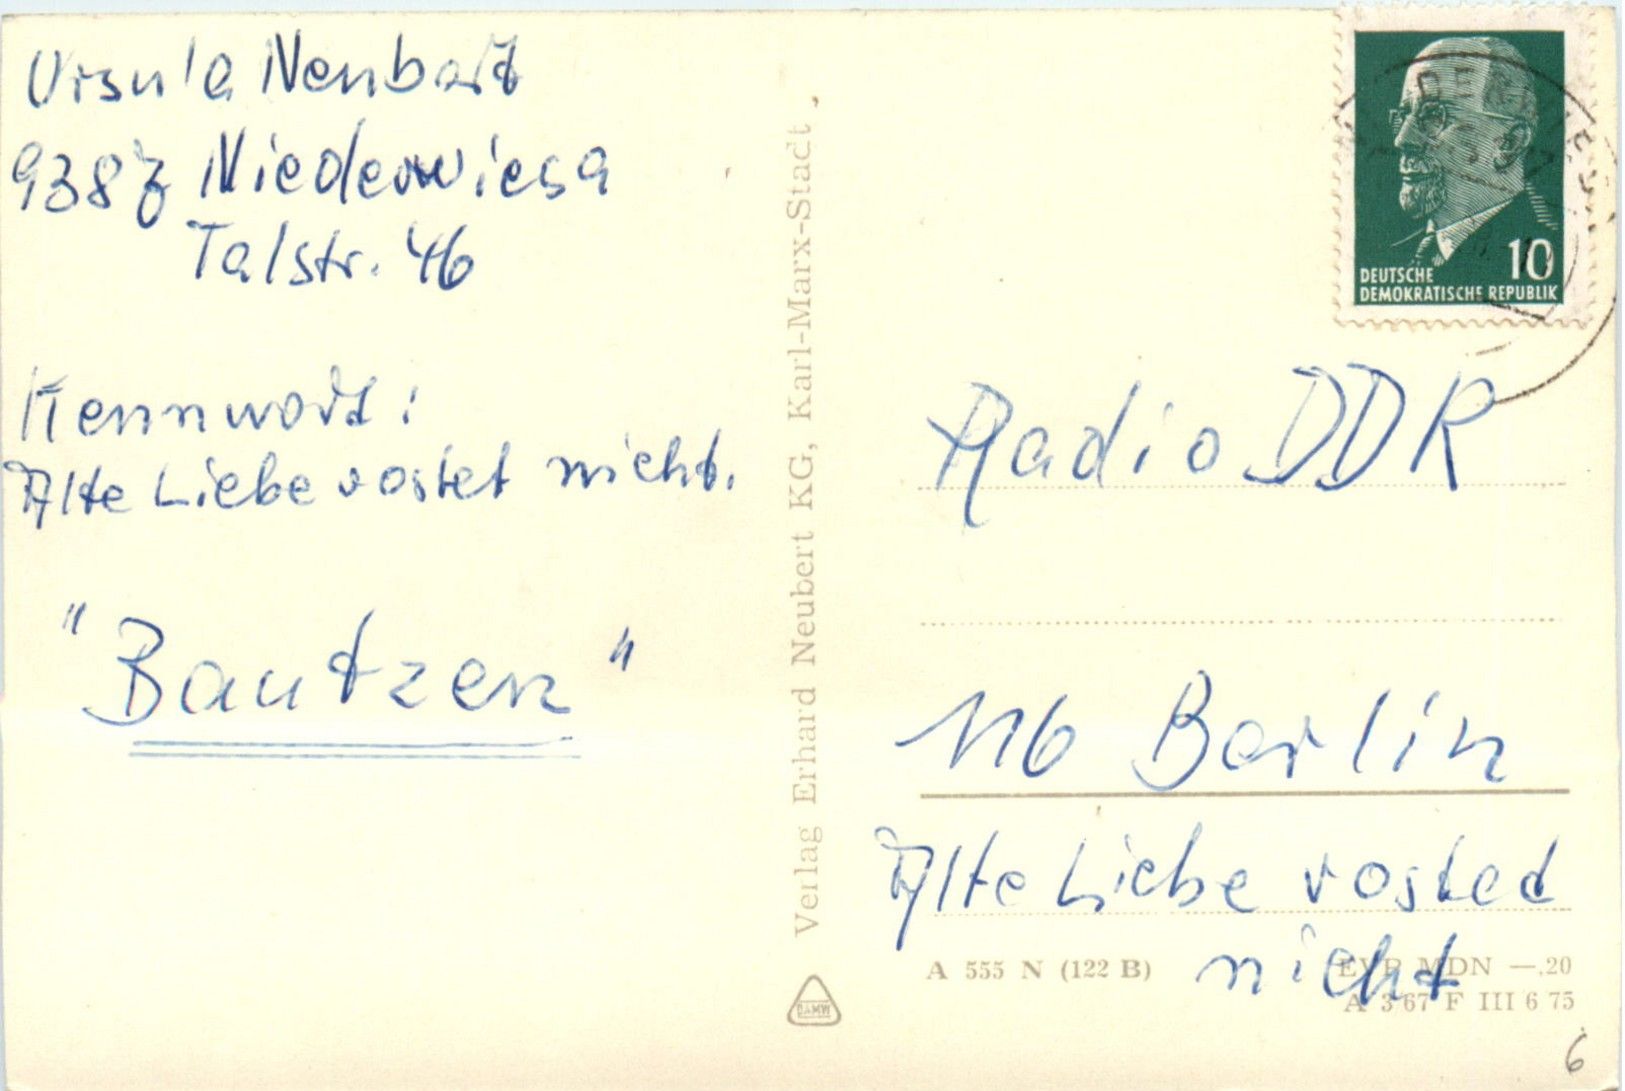 Ursula Neubert
9387 Niederwiesa
Talstr. 46
Kennwort:
Alte Liebe rostet nicht.
"Bautzen"
Verlag Erhard Neubert KG, Karl-Marx-Stadt
DAMW
10
DEUTSCHE
DEMOKRATISCHE REPUBLIK
Radio DDR
116 Berlin
Alte Liebe rostet
nicht
A 555 N (122 B)
EVP MDN —,20
A 3/67 F III 6 75
6